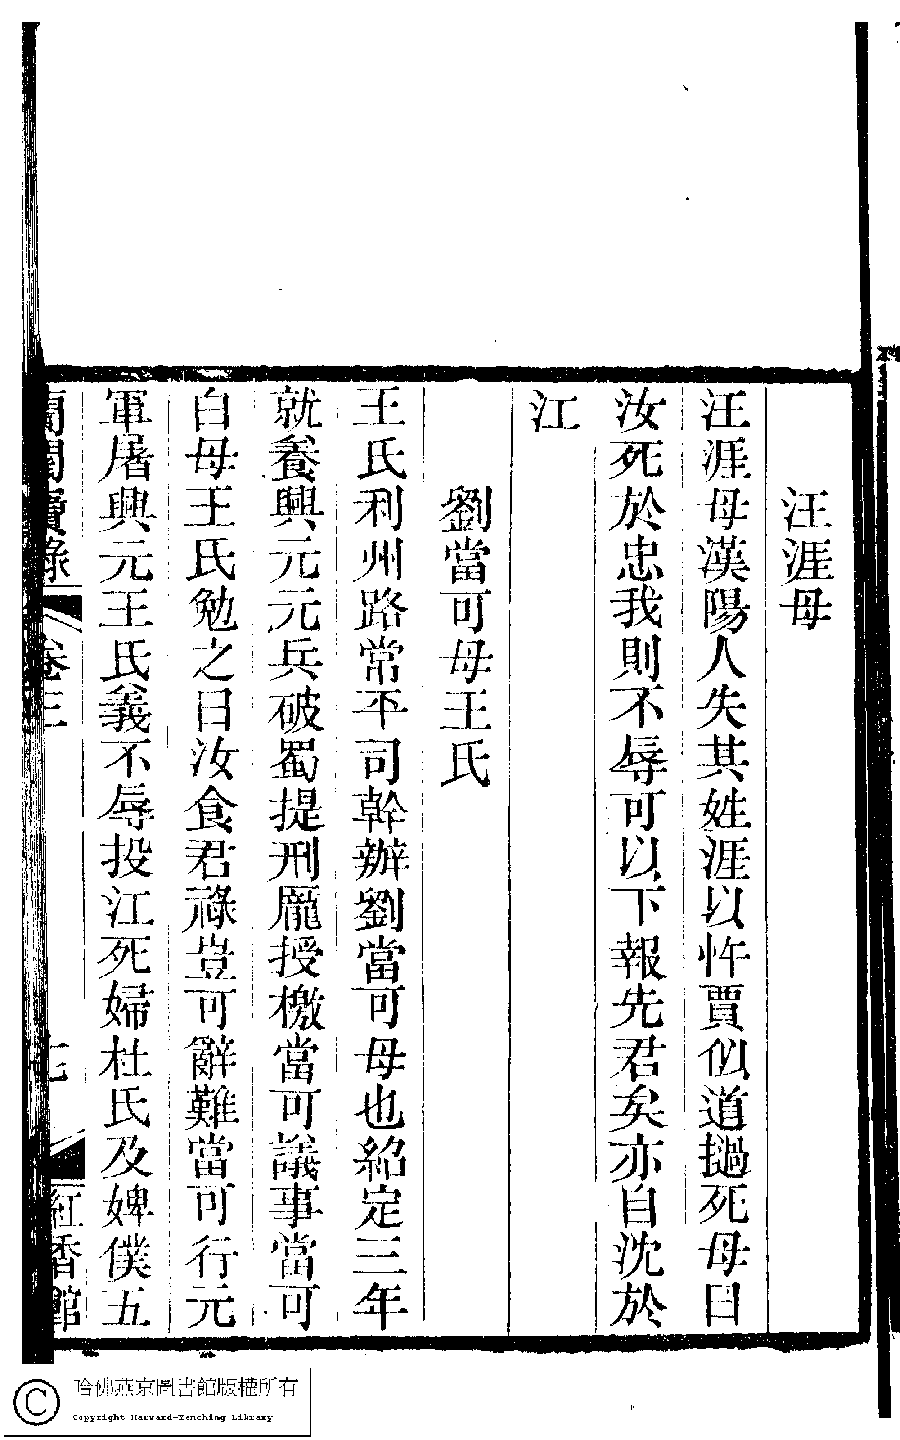 汪涯母
汪涯母漢陽人失其姓涯以忤賈似道撾死母曰
汝死於忠我則不辱可以下報先君矣亦自沈於
江
劉當可母王氏
王氏利州路常平司幹辦劉當可母也紹定三年
就養興元元兵破蜀提刑龐授檄當可議事當可
白母王氏勉之曰汝食君祿豈可辭難當可行元
軍屠興元王氏義不辱投江死婦杜氏及婢僕五
蘭閨寶錄
卷三
七
紅香館
哈佛燕京圖書館版權所有
Copyright Harvard-Yenching Library